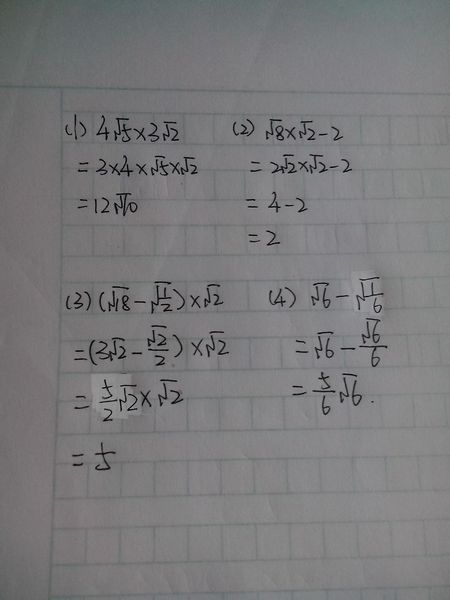 (1) 4√5×3√2
=3×4×√5×√2
=12√10
(2) √8×√2-2
=2√2×√2-2
=4-2
=2
(3) (√18-√(1/2))×√2
=(3√2-√2/2)×√2
=5/2√2×√2
=5
(4) √6-√(1/6)
=√6-√6/6
=5/6√6.